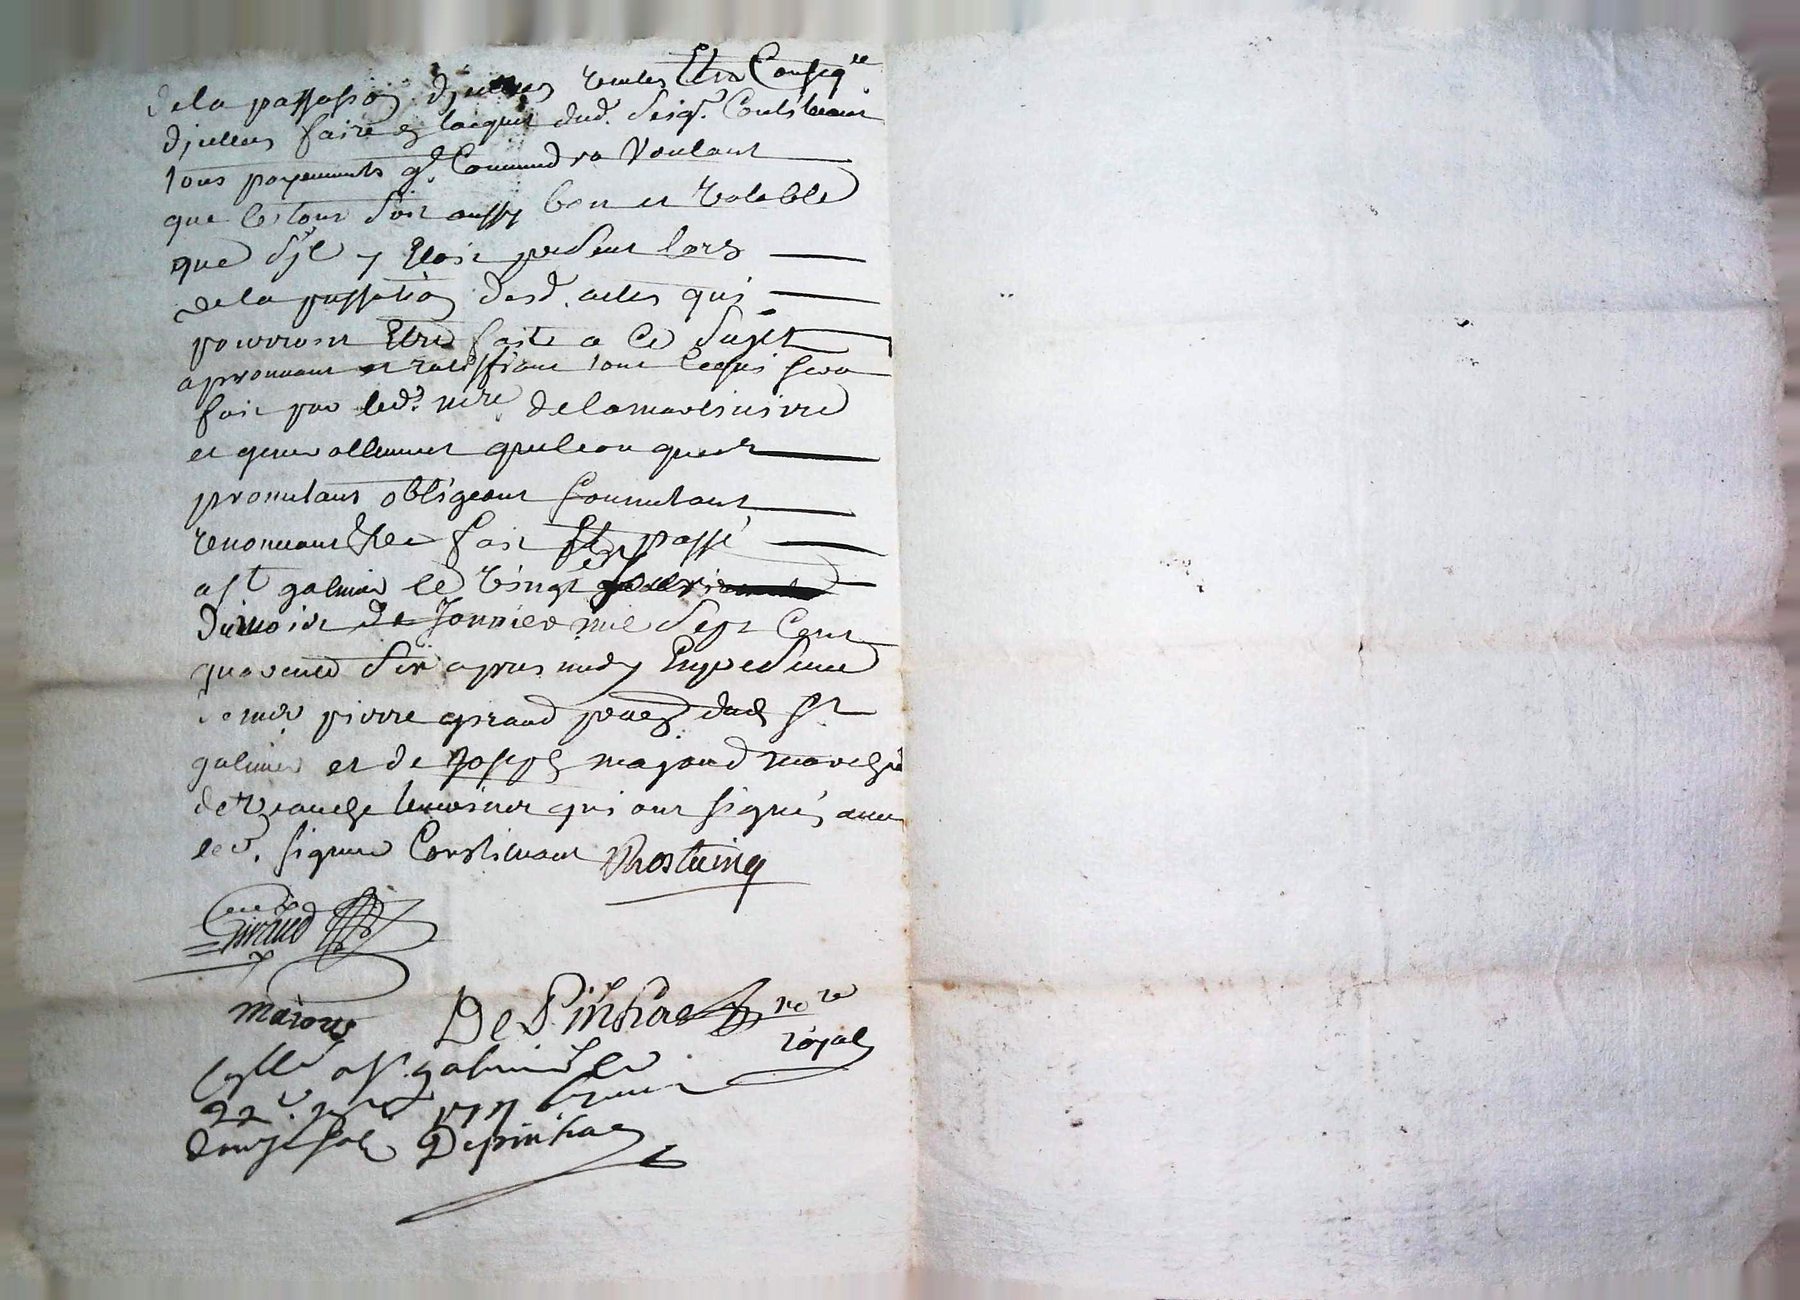 de la passassion d'jcelles rentes Et en Conseq.ce
d'jcelles faire et lacquit dud. seig.r Constituant
tous payements q.l Conviendra Voulant
que le tout soit aussy bon et valable
que s'jl y Etoit present lors
de la passation desd. actes qui
pourront Etre faits a ce sujet
aprouvant et ratiffiant tout ce qui sera
fait par led. me de lamartiniere
et generallement quelconques
promettant obligeant soumettant
renonceant fait Et passé
a St galmier le vingt
du mois de Janvier mil sept Cent
quarente six apres midy En presence
de pierre giraud dud. St
galmier et de Joseph march
de qui ont signés avec
led. signeur Constituant Rostaing
Giraud
DePinhac no.re
royal
Con.llé a St galmier le
22e.
douze sols Depinhac